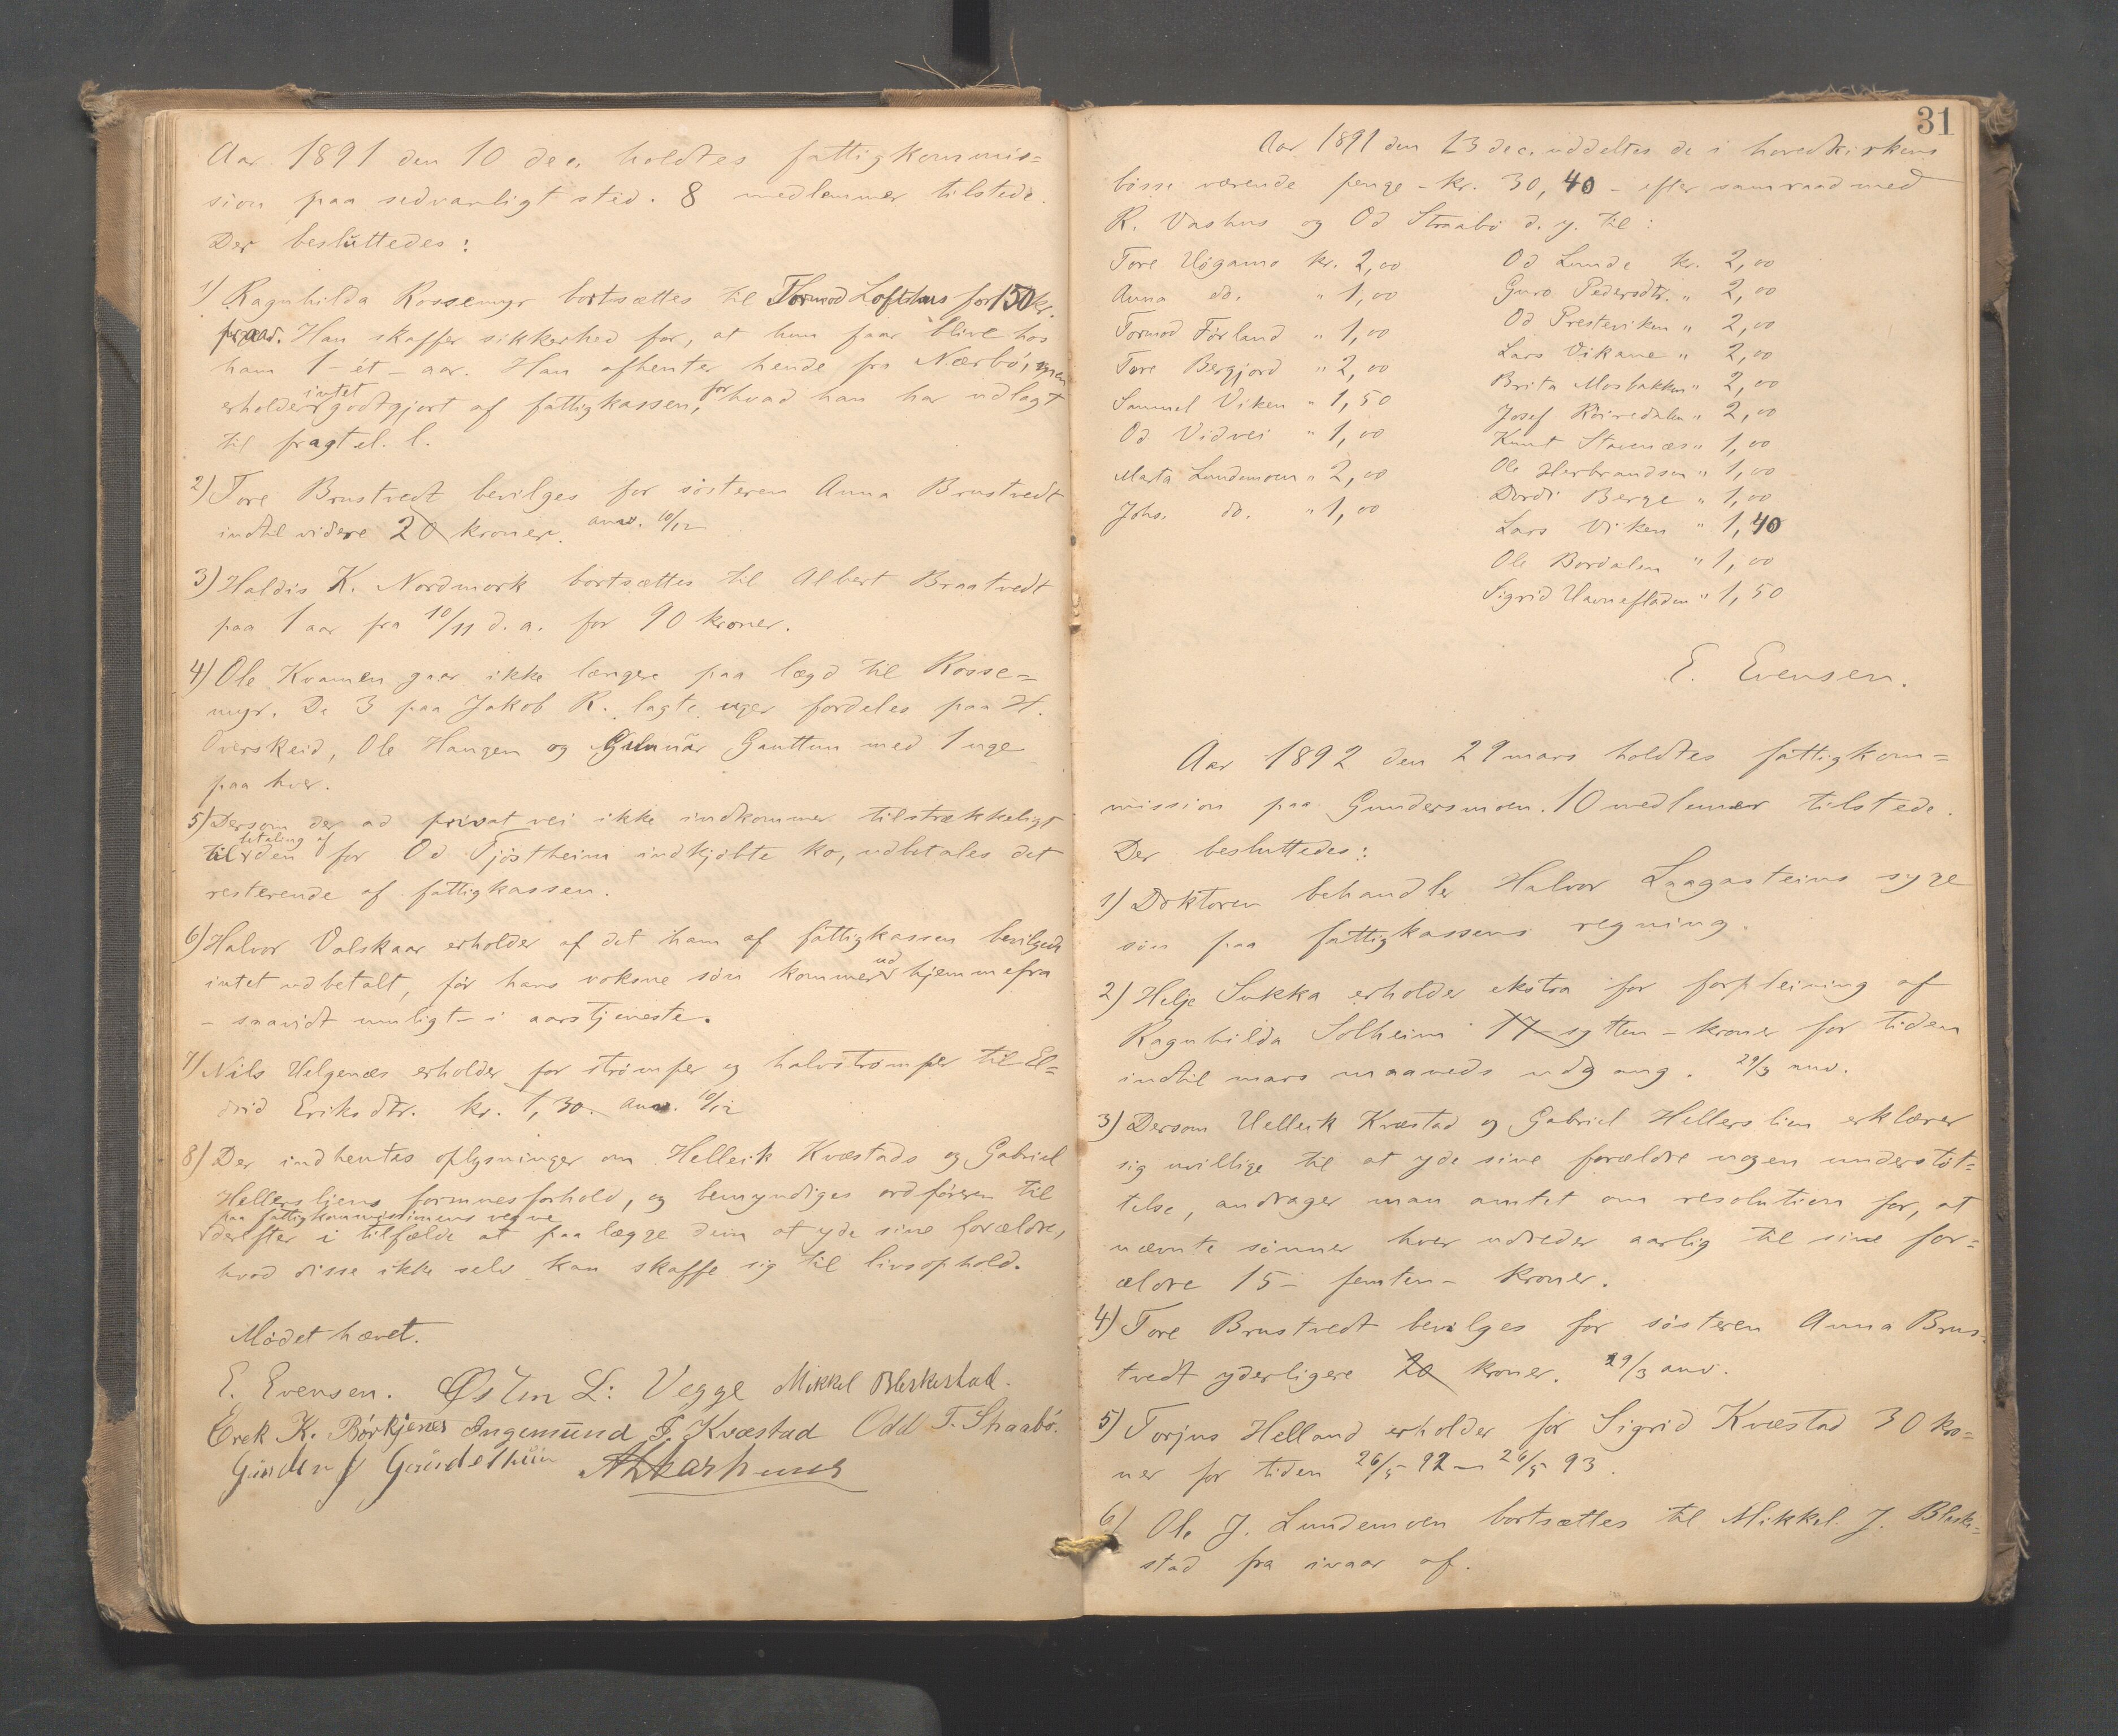 Aar 1891 den 10 dec. holdtes fattigkommis=
sion paa sedvanligt sted. 8 medlemmer tilstede.
Der besluttedes:
1) Ragnhilda Rossemyr bortsættes til Tormod Loftshus for 150 kr.
pr. aar. Han skaffer sikkerhed for, at hun faar blive hos
ham 1 - ét - aar. Han afhenter hende fra Nærbø, men
erholder intet godtgjort af fattigkassen, for hvad han har udlagt
til fragt el. l.
2) Tore Brustvedt bevilges for søsteren Anna Brustvedt
indtil videre 20 kroner. anv. 10/12
3) Haldis K. Nordmork bortsættes til Albert Braatvedt
paa 1 aar fra 10/11 d. a. for 90 kroner.
4) Ole Kvamen gaar ikke længere paa lægd til Rosse=
myr. De 3 paa Jakob R. lagte uger fordeles paa H.
Overskeid, Ole Haugen og Gunnar Gauttun med 1 uge
paa hver.
5) Dersom der ad privat vei ikke indkommer tilstrækkeligt
til betaling af den for Od Tjøstheim indkjøbte ko, udbetales det
resterende af fattigkassen.
6) Halvor Valskaar erholder af det ham af fattigkassen bevilgede
intet udbetalt, før hans voksne søn kommer ud hjemmefra
- saavidt muligt - i aarstjeneste.
7) Nils Helgenæs erholder for strømper og halvstrømper til El=
drid Eriksdtr. kr. 1,30. anv. 10/12
8) Der indhentes oplysninger om Helleik Kvæstads og Gabriel
Hellersliens formuesforhold, og bemyndiges ordføreren til
paa fattigkommissionens vegne
derefter i tilfælde at paalægge dem at yde sine forældre,
hvad disse ikke selv kan skaffe sig til livsophold.
Mødet hævet.
E. Evensen. Østen L: Vegge Mikkel Bleskestad.
Erek K. Børkjenes Ingemund T. Kvæstad Odd T. Straabø.
31
Aar 1891 den 23 dec. uddeltes de i hovedkirkens
bøsse værende penge - kr. 30,40 - efter samraad med
R. Vashus og Od Straabø d. y. til:
Tore Høgamo kr. 2,00
Anna do. " 1,00
Tormod Førland " 1,00
Tore Bergjord " 2,00
Samuel Viken " 1,50
Od Vidvei " 1,00
Marta Lundemoen " 2,00
Johs. do. " 1,00
Od Lunde kr. 2,00
Guro Pedersdtr. " 2,00
Od Presteviken " 2,00
Lars Vikane " 2,00
Brita Mosbakken " 2,00
Josef " 2,00
Knut Stavnæs " 1,00
Ole Herbrandsen " 1,00
Dordi Berge " 1,00
Lars Viken " 1,40
Ole Bordalen " 1,00
Sigrid Havnefladen " 1,50
E. Evensen.
Aar 1892 den 29 mars holdtes fattigkom=
mission paa Gundersmoen. 10 medlemer tilstede.
Der besluttedes:
1) Doktoren behandler Halvor Laagasteins syge
søn paa fattigkassens regning.
2) Helje Sukka erholder ekstra for forpleining af
Ragnhilda Solheim 17 - sytten - kroner for tiden
indtil mars maaneds udgang. 29/3 anv.
3) Dersom Helleik Kvæstad og Gabriel Hellerslien erklærer
sig uvillige til at yde sine forældre nogen understøt=
telse, andrager man amtet om resolution for, at
nævnte sønner hver udreder aarlig til sine for=
ældre 15 - femten - kroner.
4) Tore Brustvedt bevilges for søsteren Anna Brus-
tvedt yderligere 20 kroner. 29/3 anv.
5) Torjus Helland erholder for Sigrid Kvæstad 30 kro=
ner for tiden 26/5 92 - 26/5 93.
6) Ole J. Lundemoen bortsættes til Mikkel J. Bleske=
stad fra ivaar af.